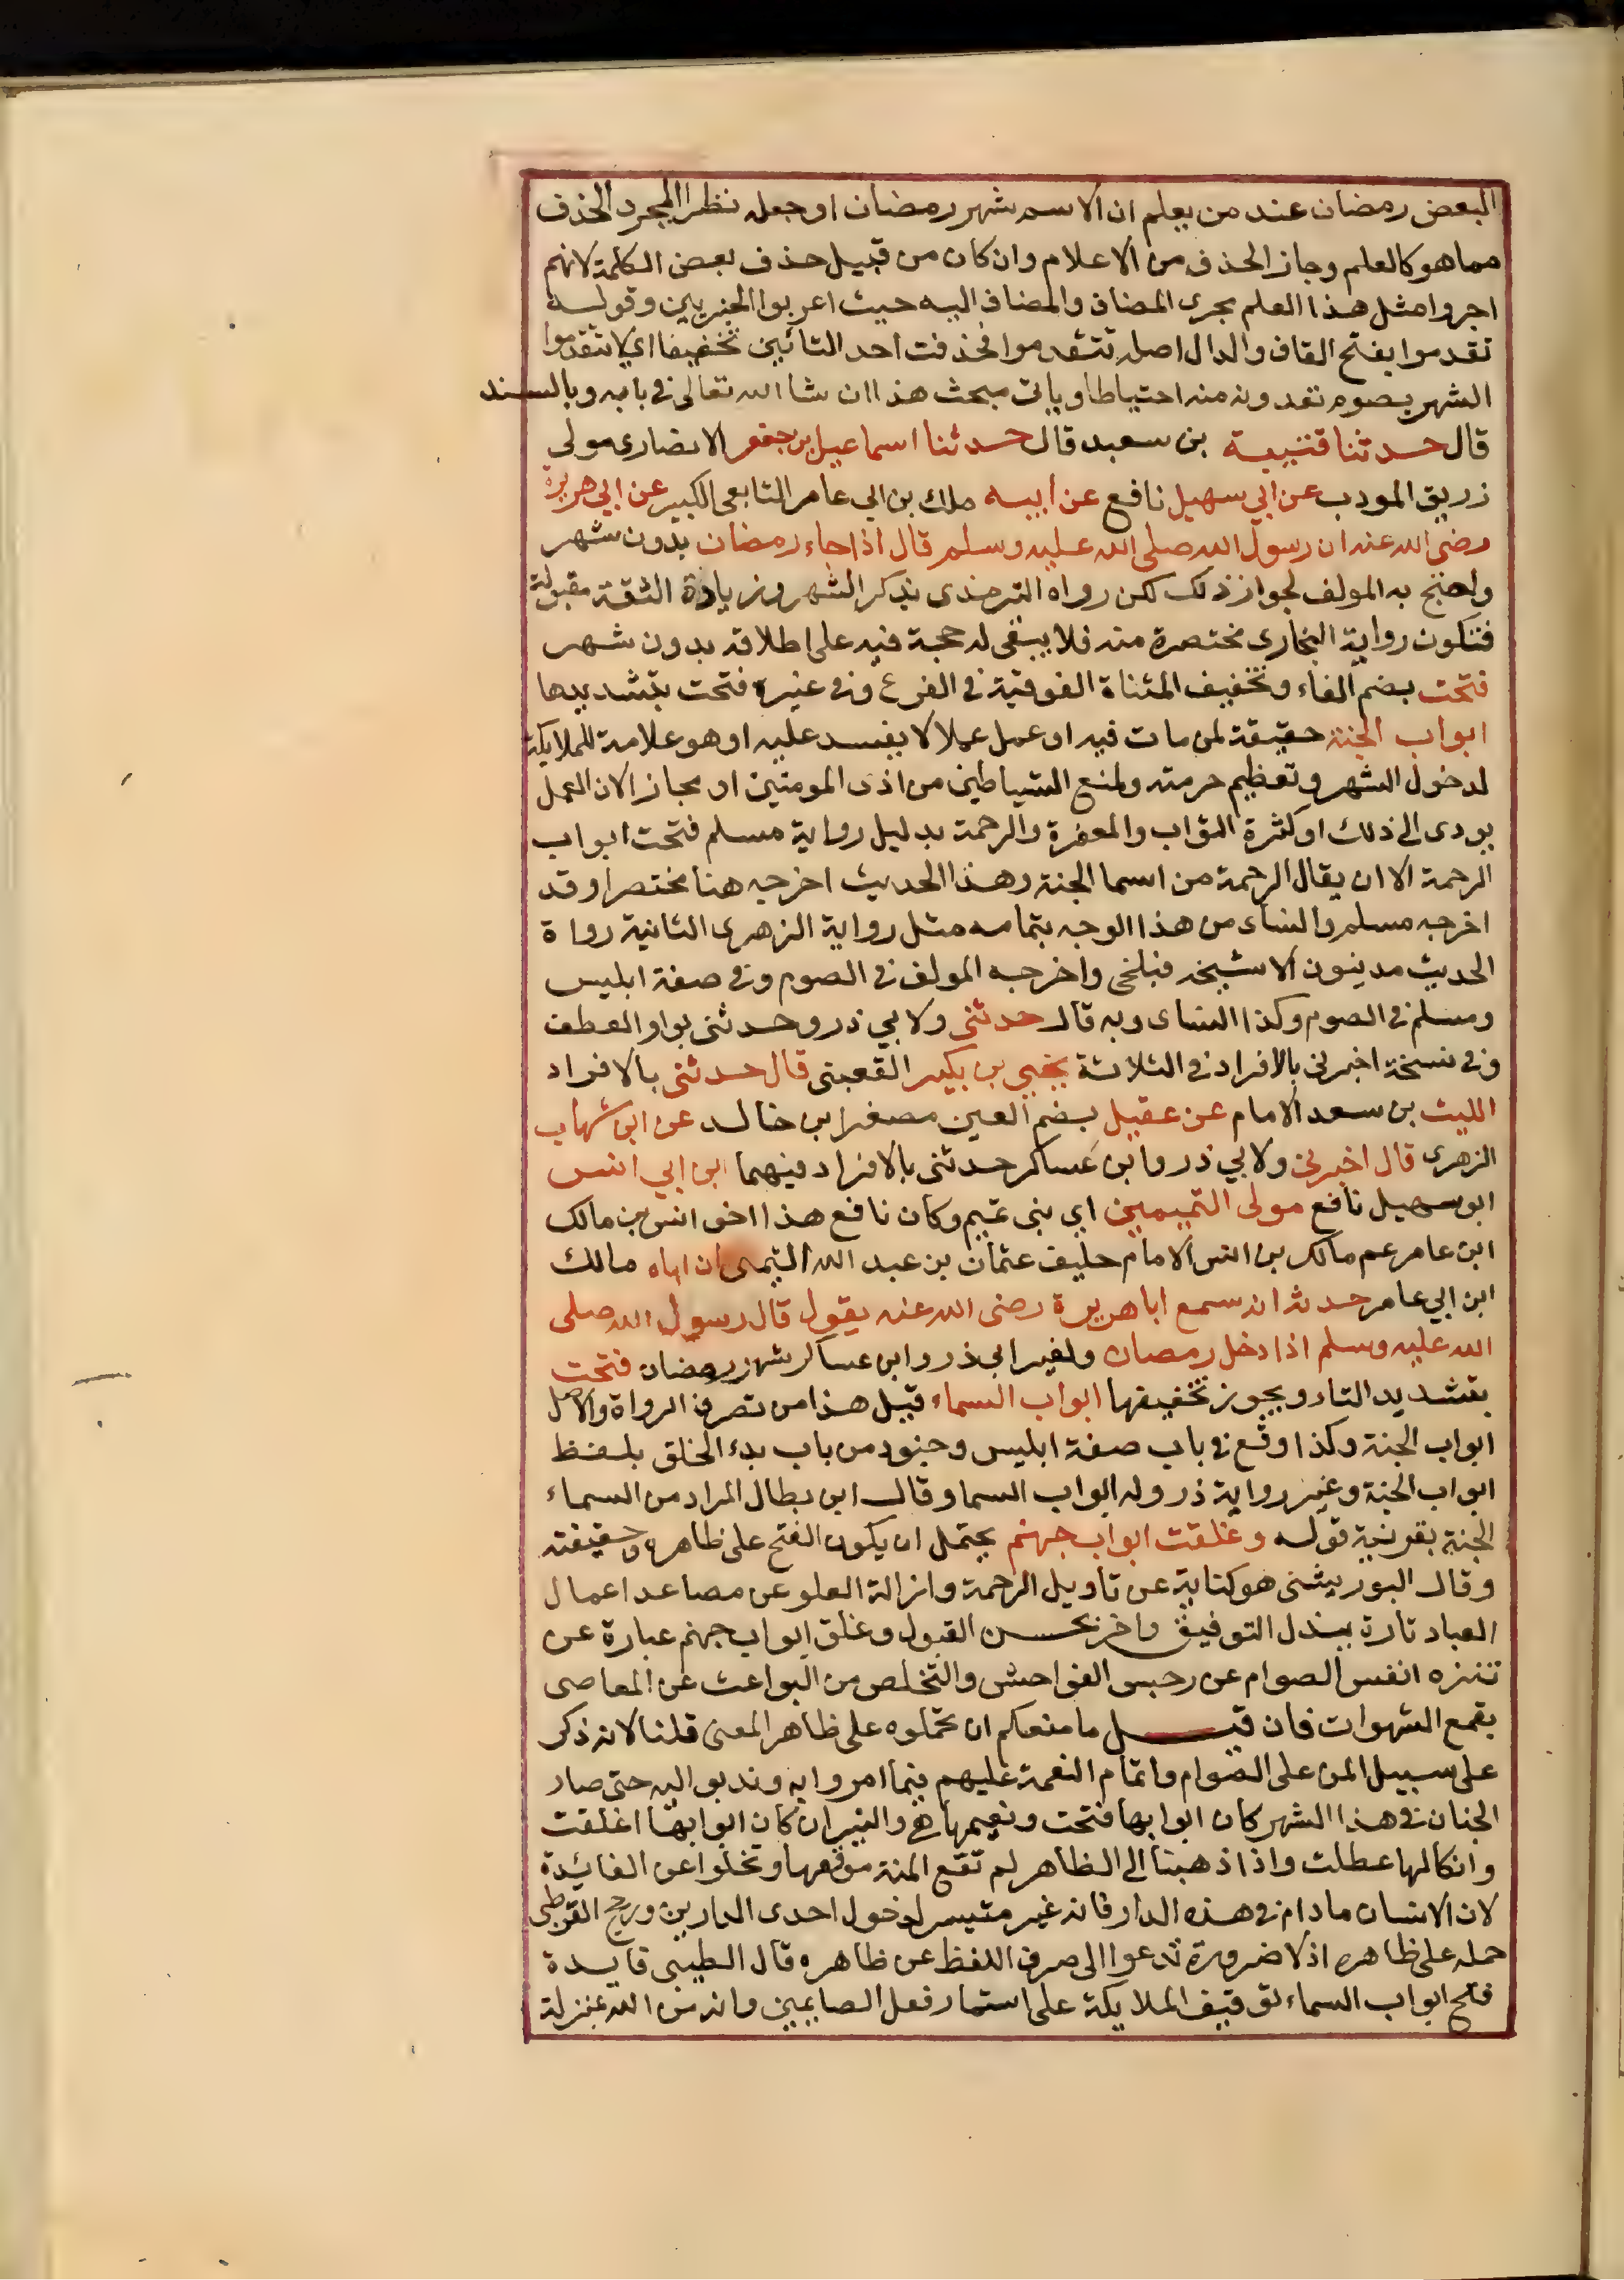 البعض رمضان عند من يعلم ان الاسم شهر رمضان او جعله نظرا لمجرد الحذف
مما هو كالعلم وجاز الحذف من الاعلام وان كان من قبيل حذف بعض الكلمة لانهم
اجروا مثل هذا العلم مجرى المضاف والمضاف اليه حيث اعربوا الجزيين وقوله
تقدموا بفتح القاف والدال اصله تتقدموا فحذفت احد التائين تخفيفا اي لا تتقدموا
الشهر بصوم تعدونه منه احتياطا وياتي مبحث هذا ان شا الله تعالى في بابه وبالسند
قال حدثنا قتيبة بن سعيد قال حدثنا اسماعيل بن جعفر الانصارى مولى
زريق المودب عن ابي سهيل نافع عن ابيه ملك بن ابي عامر التابعى الكبير عن ابي هريرة
رضى الله عنه ان رسول الله صلى الله عليه وسلم قال اذا جاء رمضان بدون شهر
واحتج به المولف لجواز ذلك لكن رواه الترمذى بذكر الشهر وزيادة الثقة مقبولة
فتكون رواية البخارى مختصرة منه فلا يبقى له حجة فيه على اطلاقه بدون شهر
فتحت بضم الفاء وتخفيف المثناة الفوقية في الفرع وفي غيره فتحت بتشديدها
ابواب الجنة حقيقة لمن مات فيه او عمل عملا لا يفسد عليه او هو علامة للملايكة
لدخول الشهر وتعظيم حرمته ولمنع الشياطين من اذى المومنين او مجاز الان العمل
يودى الى ذلك او كثرة الثواب والمغفرة والرحمة بدليل رواية مسلم فتحت ابواب
الرحمة الا ان يقال الرحمة من اسما الجنة وهذا الحديث اخرجه هنا مختصرا وقد
اخرجه مسلم والنساى من هذا الوجه بتمامه مثل رواية الزهرى الثانية رواة
الحديث مدنيون الا شيخه فبلخى واخرجه المولف في الصوم وفي صفة ابليس
ومسلم في الصوم وكذا النساى وبه قال حدثنى ولابي ذر وحدثنى بواو العطف
وفي نسخة اخبرني بالافراد في الثلاثة يحيي بن بكير القعبنى قال حدثنى بالافراد
الليث بن سعد الامام عن عقيل بضم العين مصغرا بن خالد عن ابن شهاب
الزهرى قال اخبرني ولابي ذر وابن عساكر حدثنى بالافراد فيهما ابن ابي انس
ابو سهيل نافع مولى التميميين اي بنى تميم وكان نافع هذا اخو انس بن مالك
ابن عامر عم مالك بن انس الامام حليف عثمان بن عبد الله التيمى ان اباه مالك
ابن ابي عامر حدثه انه سمع ابا هريرة رضى الله عنه يقول قال رسول الله صلى
الله عليه وسلم اذا دخل رمضان ولغير ابي ذر وابن عساكر شهر رمضان فتحت
بتشديد التاء ويجوز تخفيفها ابواب السماء قيل هذا من تصرف الرواة والاصل
ابواب الجنة وكذا وقع في باب صفة ابليس وجنوده من باب بدء الخلق بلفظ
ابواب الجنة وغير رواية ذر وله ابواب السما وقال ابن بطال المراد من السماء
الجنة بقرينة قوله وغلقت ابواب جهنم يحتمل ان يكون الفتح على ظاهره وحقيقته
وقال البوربيشنى هو كناية عن تاويل الرحمة وازالة العلو عن مصاعد اعمال
العباد تارة ببذل التوفيق واخر بحسن القبول وغلق ابواب جهنم عبارة عن
تنزه انفس الصوام عن رجس الفواحش والتخلص من البواعث عن المعاصى
بقمع الشهوات فان قيل ما منعكم ان تحملوه على ظاهر المعنى قلنا لانه ذكر
على سبيل المن على الصوام واتمام النعمة عليهم فيما امروا به وندبو اليه حتى صار
الجنان في هذا الشهر كان ابوابها فتحت ونعيمها هي والنيران كان ابوابها اغلقت
وانكالها عطلت واذا ذهبنا الى الظاهر لم تقع المنة موقعها وتخلوا عن الفائدة
لان الانسان ما دام في هذه الدار فانه غير متيسر لدخول احدى الدارين ورجح القرطبى
حمله على ظاهره اذ لا ضرورة تدعوا الى صرف اللفظ عن ظاهره قال الطيبى فايدة
فتح ابواب السماء توقيف الملايكة على استحمار فعل الصايمين وانه من الله بمنزلة